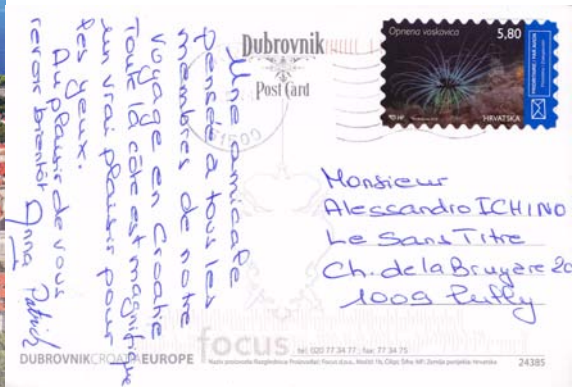 Dubrovnik
Post Card
Opnena voskovica
5,80
HRVATSKA
PRIORITAIRE / PAR AVION
Une amicale
pensée à tous les
membres de notre
voyage en Croatie
Toute la côte est magnifique
un vrai plaisir pour
les yeux.
Au plaisir de vous
revoir bientôt
Anna Patrick
Monsieur
Alessandro ICHINO
Le Sans Titre
Ch. de la Bruyère 2c
1009 Pully
focus
tel: 020 77 34 77; fax: 77 34 75
DUBROVNIKCROATIAEUROPE
24385